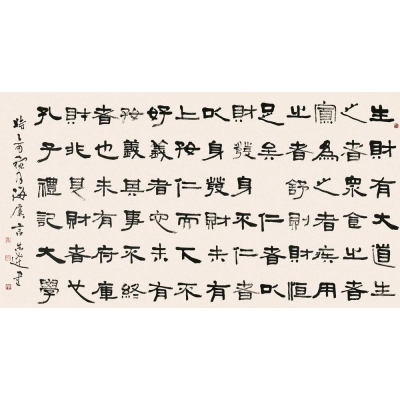 生財有大道生
之者衆食之者
寡為之者疾用
之者舒則財恒
足矣仁者以
財發身不仁者
以身發財未有
上好仁而下不
好義者也未有
好義其事不終
者也未有府庫
財非其財者也
孔子禮記大學
海虞言恭達書